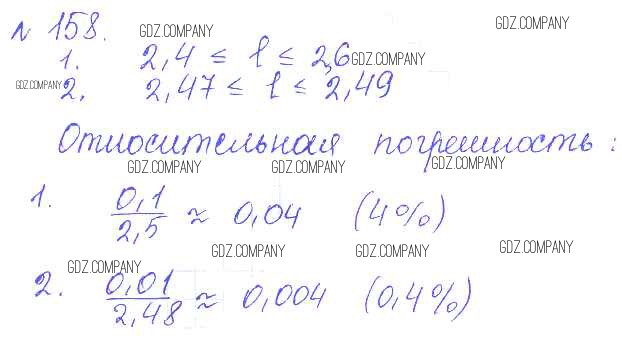 № 158.
GDZ.COMPANY
GDZ.COMPANY
1. 2,4 ≤ l ≤ 2,6
GDZ.COMPANY
GDZ.COMPANY
2. 2,47 ≤ l ≤ 2,49
Относительная погрешность:
GDZ.COMPANY
GDZ.COMPANY
GDZ.COMPANY
1. 0,1/2,5 ≈ 0,04 (4%)
GDZ.COMPANY
GDZ.COMPANY
GDZ.COMPANY
GDZ.COMPANY
2. 0,01/2,48 ≈ 0,004 (0,4%)